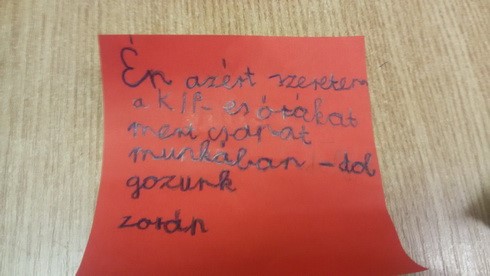 Én azért szeretem
a KIP es órákat
mert csapat
munkában - dol
gozunk
zorán